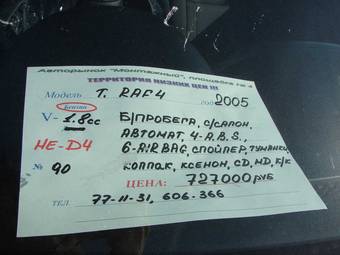 Авторынок "Монтажный", площадка № 4
ТЕРРИТОРИЯ НИЗКИХ ЦЕН !!!
Модель T. RAF4 год 2005
Бензин
V- 1.8cc Б/ПРОБЕГА, С/САЛОН,
АВТОМАТ, 4-A.B.S.,
НЕ-D4 6-AIRBAG, СПОЙЛЕР, ТУМАНКИ,
№ 90 КОЛПАК, КСЕНОН, CD, MD, К/К
ЦЕНА: 727000 РУБ
ТЕЛ 77-11-31, 606-366